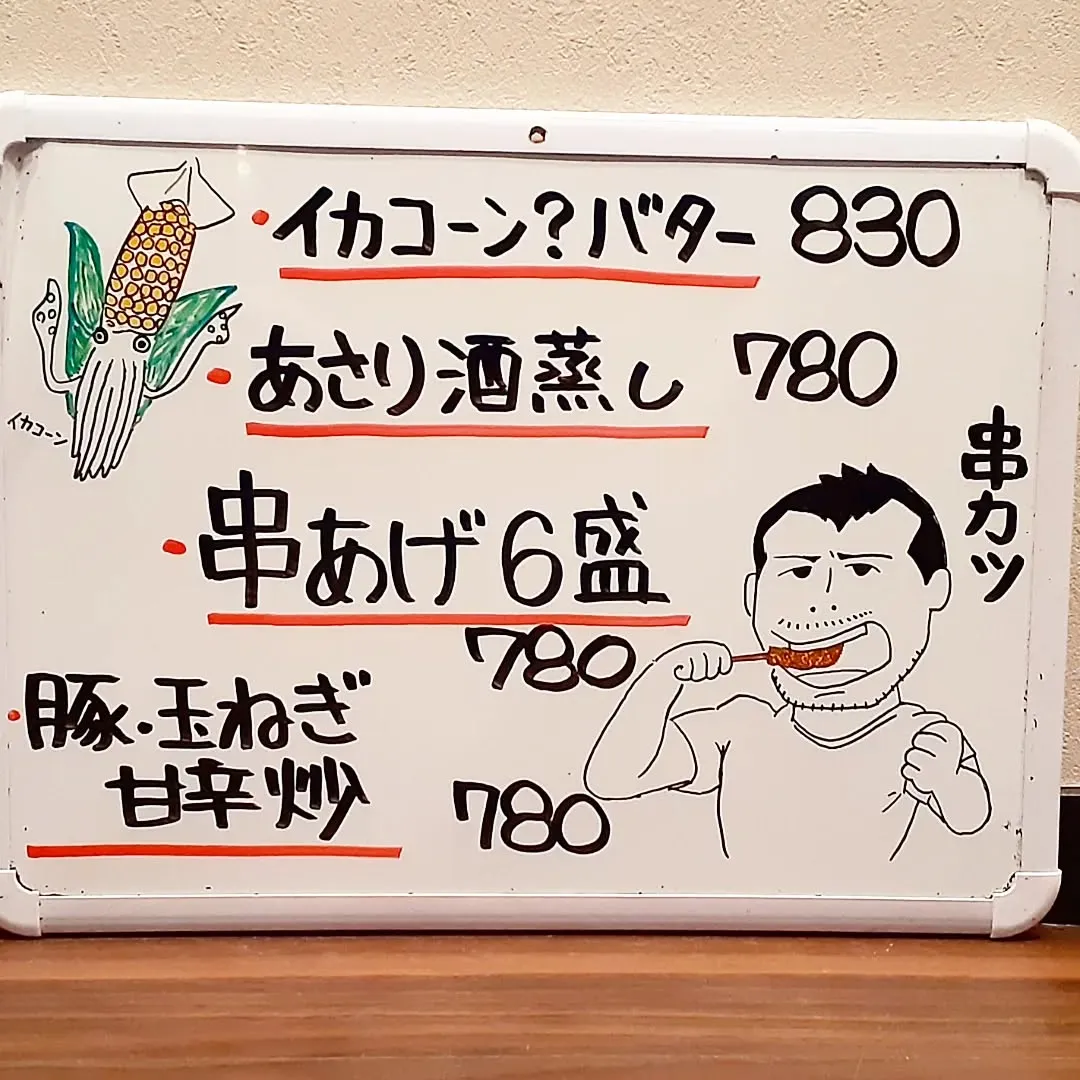 イカコーン?バター 830
あさり酒蒸し 780
イカコーン
串カツ
串あげ6盛
780
豚・玉ねぎ
甘辛炒 780